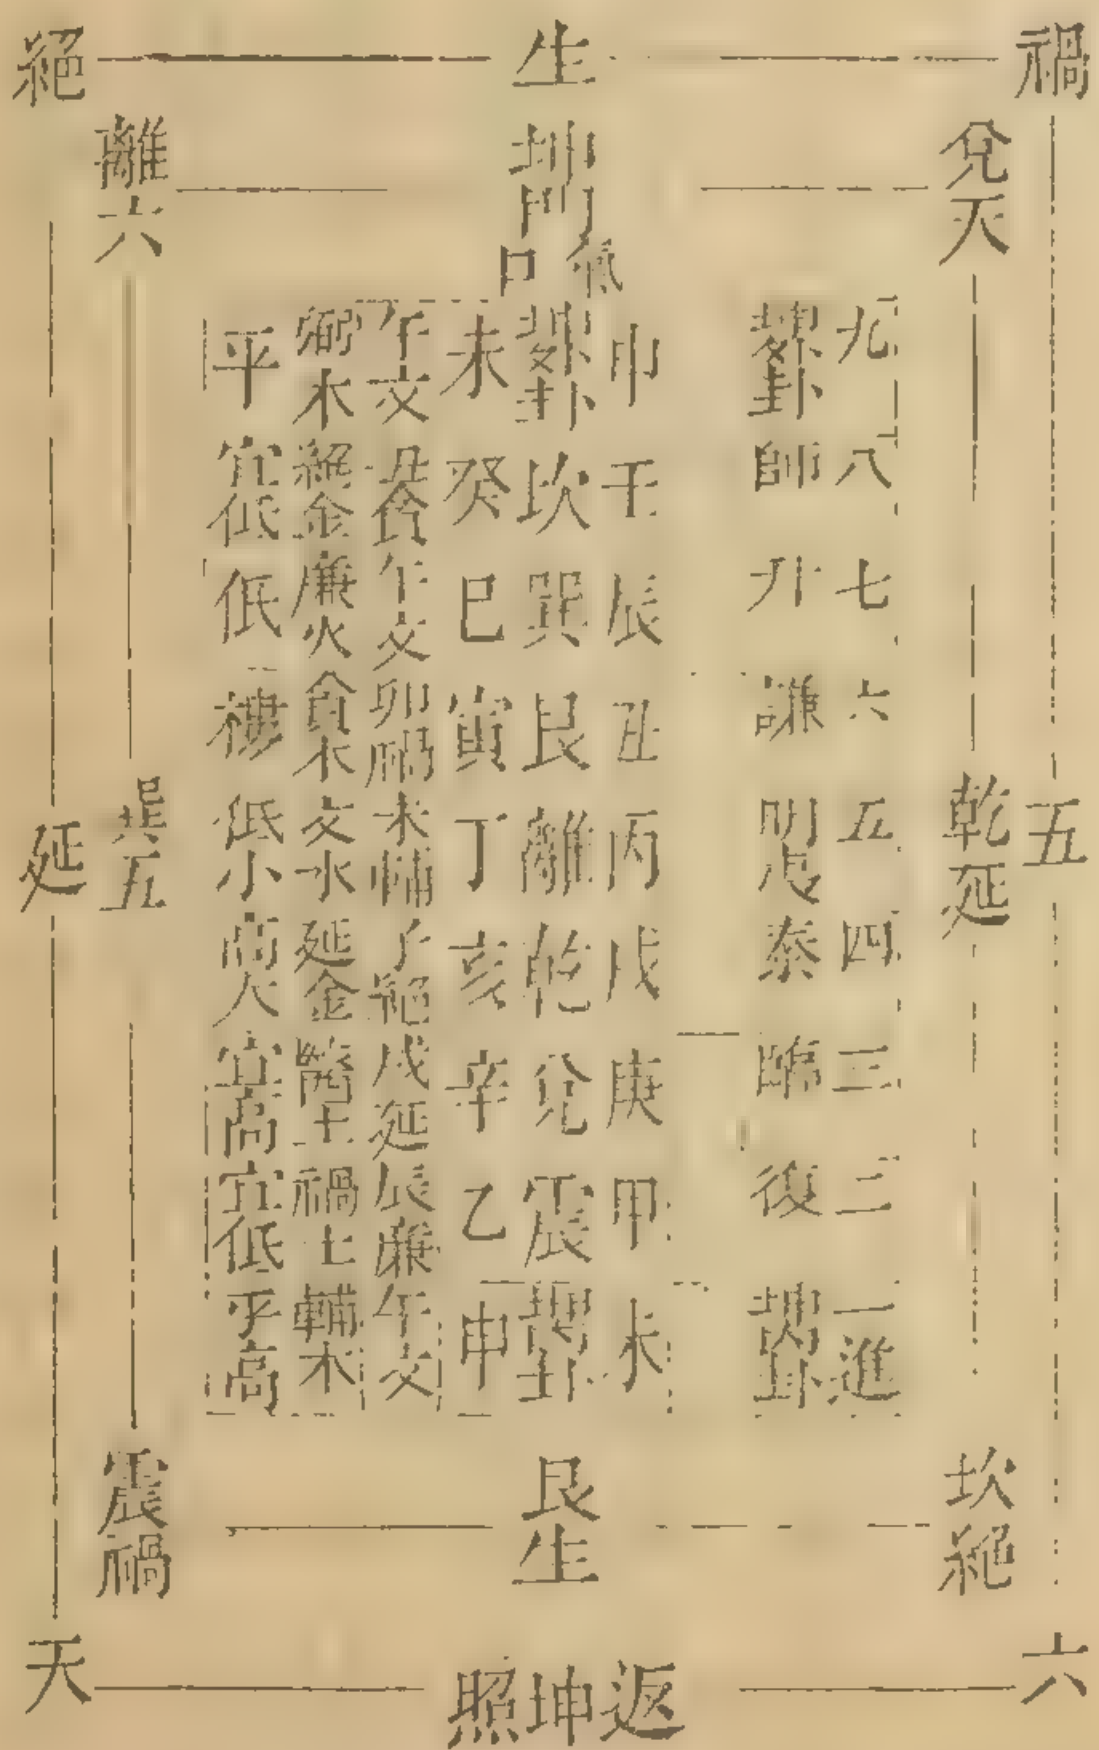 禍
生
絕
兌天
坤門
離六
氣口
九 八 七 六 五 四 三 二 一進
坤卦 師 升 謙 明夷 泰 臨 復 坤卦
申 壬 辰 丑 丙 戌 庚 甲 未
坤卦 坎 巽 艮 離 乾 兌 震 坤卦
未 癸 巳 寅 丁 亥 辛 乙 申
午文 丑貪 午文 卯禍 未輔 子絕 戌延 辰廉 午文
木 絕金 廉火 貪木 文水 延金 土 禍土 輔木
平 宜低 低 樓 低小 高大 宜高 宜低 平高
五
乾延
巽五
延
坎絕
艮生
震禍
六
返坤照
天